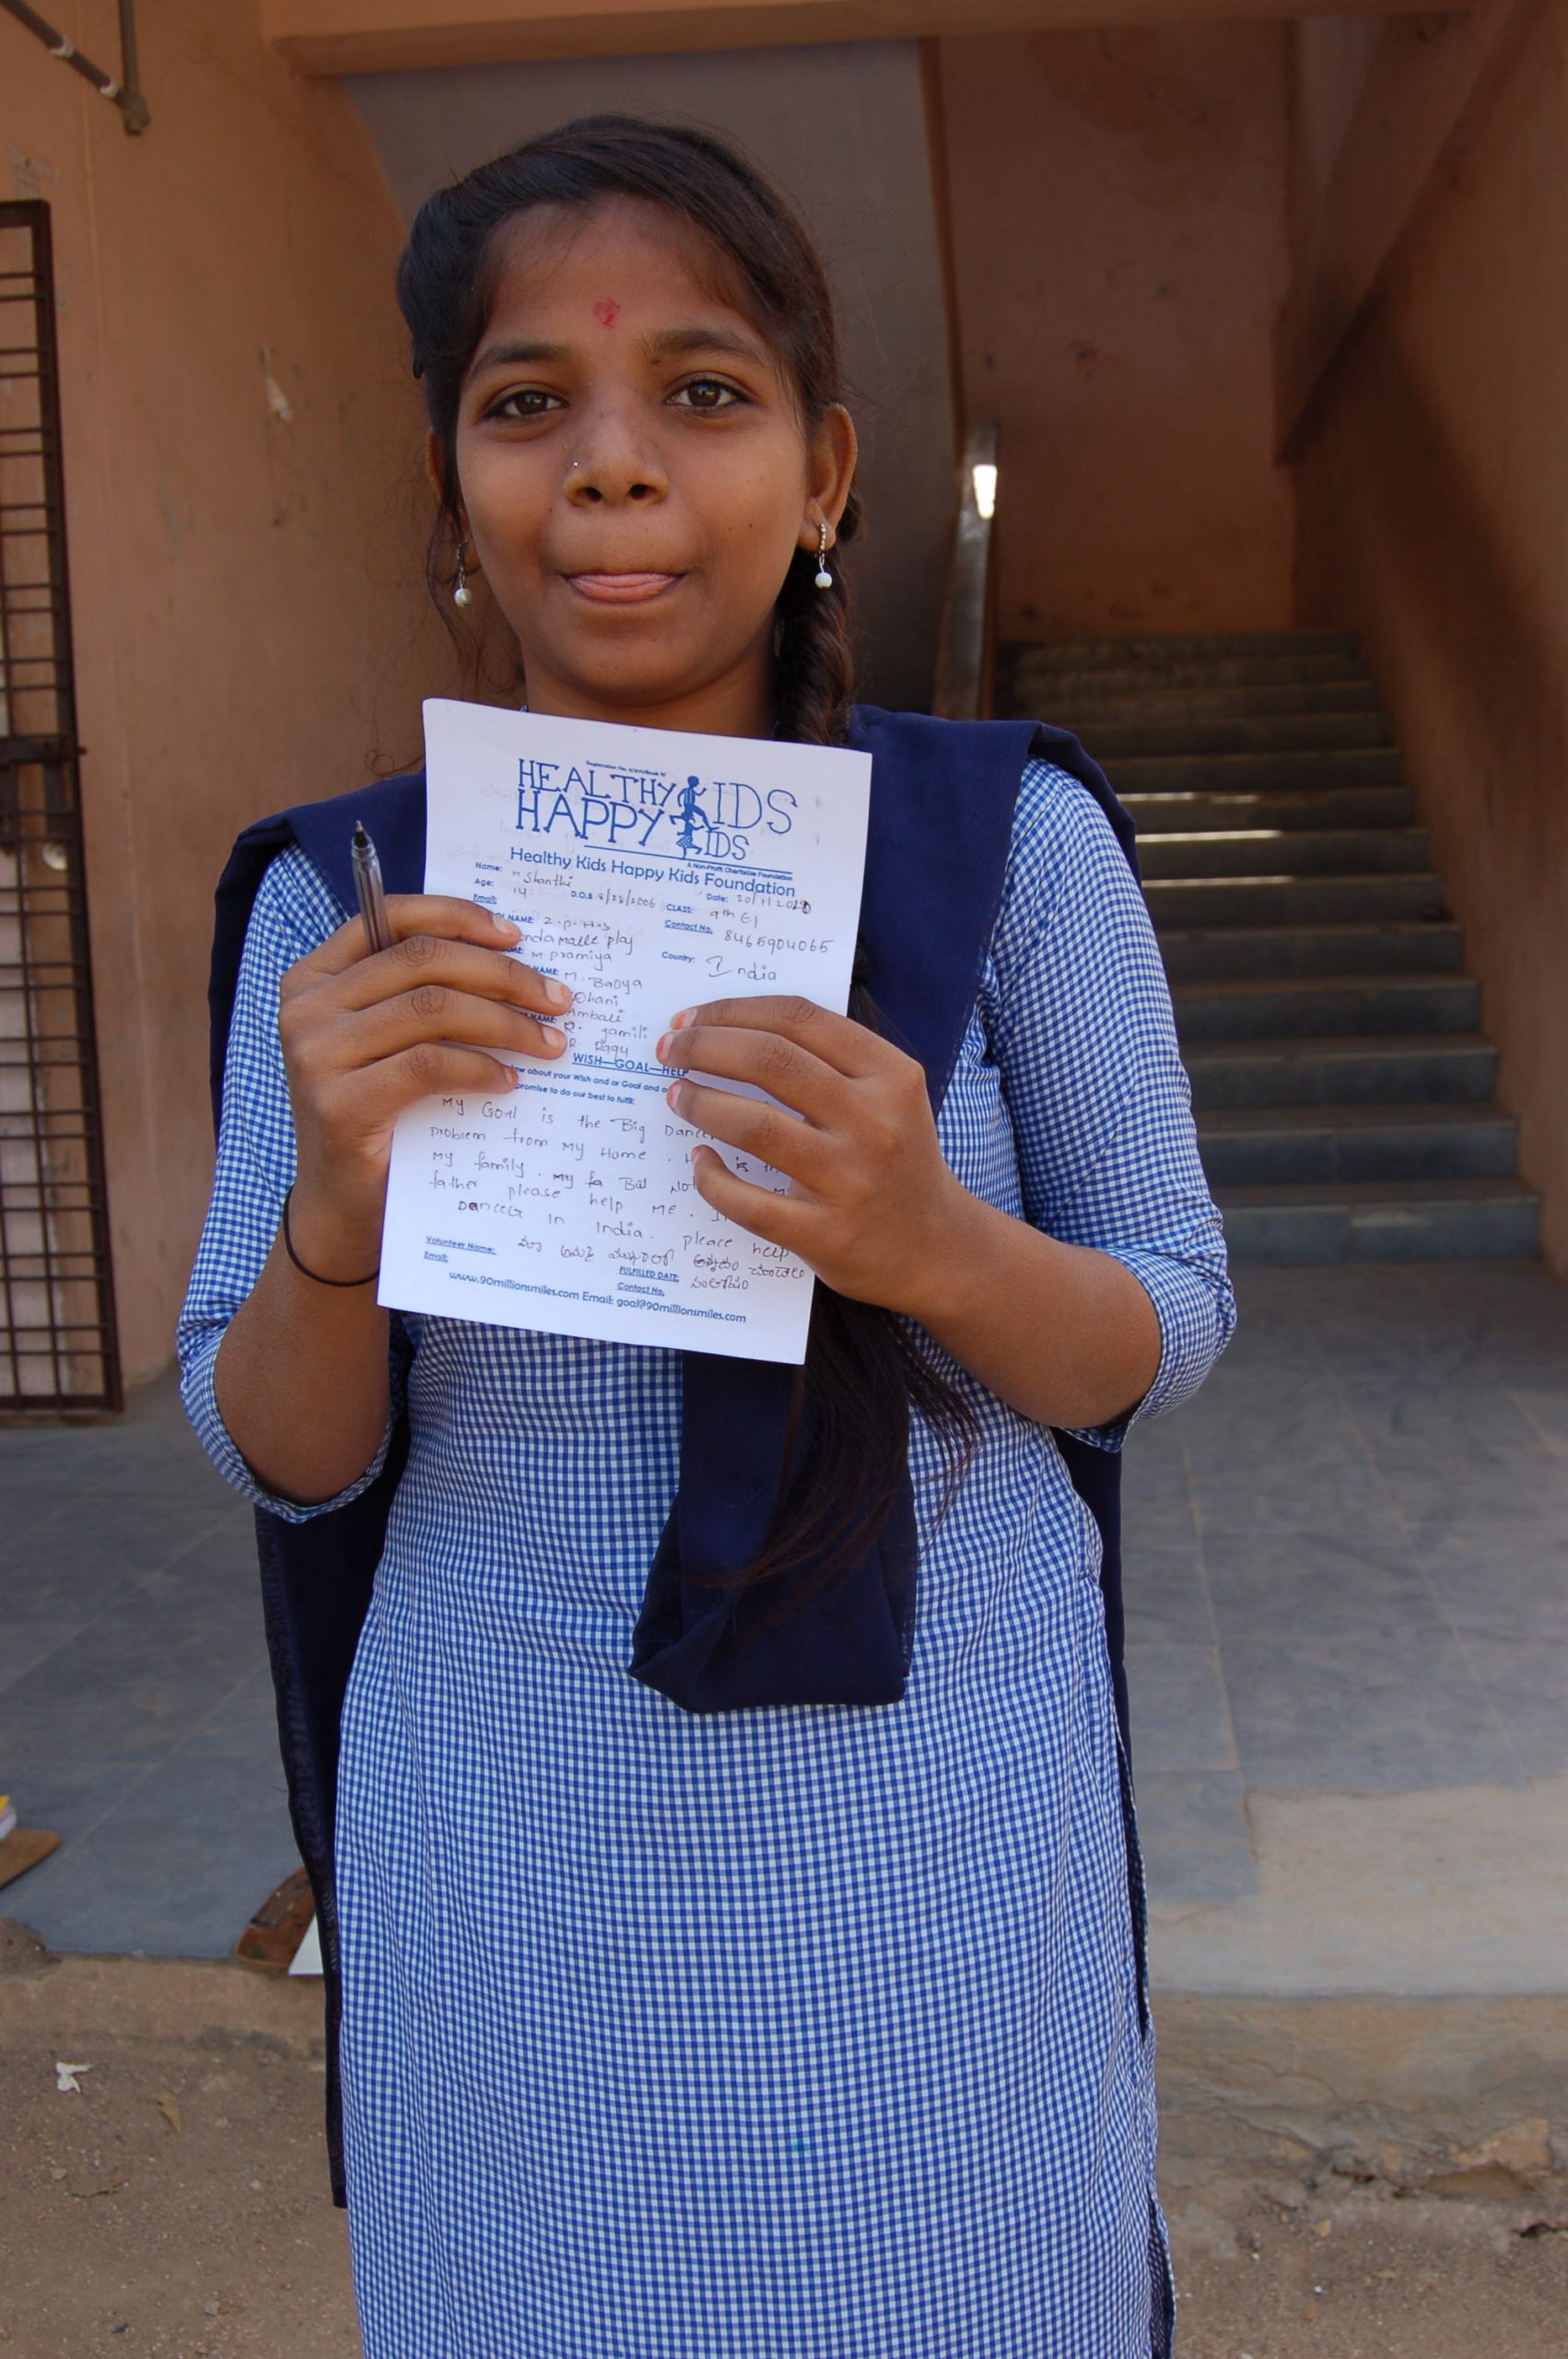 HEALTHY KIDS
HAPPY KIDS
A Non-Profit Charitable Foundation
Healthy Kids Happy Kids Foundation
Name: M Shanthi Date: 20/11/2020
Age: 14 D.O.B 8/28/2006 CLASS: 9th E/
Email: Contact No. 8465904065
NAME: Z.P.H.S
M. Pramiya Country: India
NAME: M. Badya
Dhani
Ambali
NAME: R. Jamili
WISH—GOAL—HELP
about your Wish and or Goal and
promise to do our best to fulfill:
My Goal is the Big Dancer
problem from My Home . is
My family . My fa Bil Not
father please help ME .
Dancer in India . please help
Volunteer Name: మా
Email: FULFILLED DATE:
Contact No.
www.90millionsmiles.com Email: goal@90millionsmiles.com